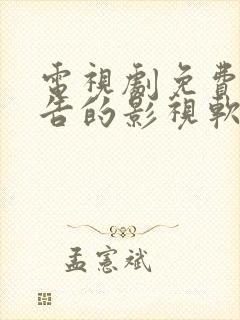 電視劇免費
告的影視軟
孟憲斌